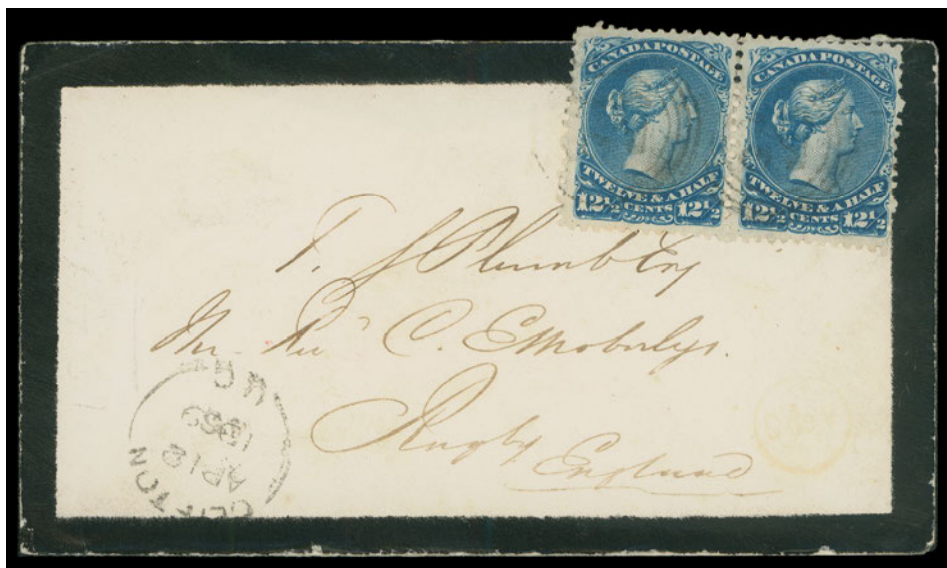 CANADA POSTAGE
TWELVE & A HALF
12½ CENTS 12½
CANADA POSTAGE
TWELVE & A HALF
12½ CENTS 12½
T. S Plumb Esq
C. E Moberlys.
Rugby
England
CLIFTON
AP 12
U.C.